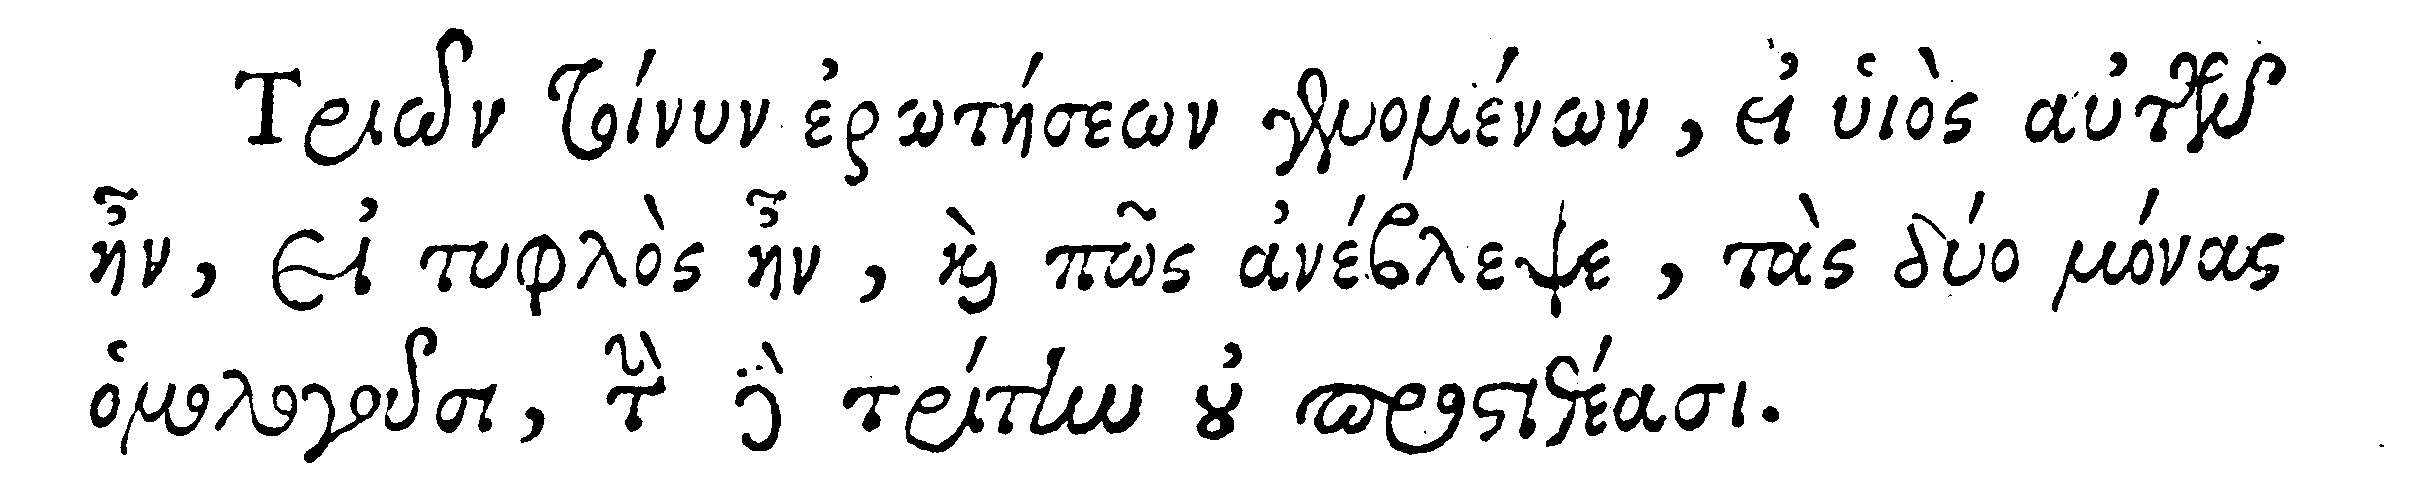 Τριῶν τοίνυν ἐρωτήσεων γενομένων, εἰ υἱὸς αὐτῶν
ἦν, εἰ τυφλὸς ἦν, καὶ πῶς ἀνέβλεψε, τὰς δύο μόνας
ὁμολογοῦσι, τὴν δὲ τρίτην οὐ προστιθέασι.